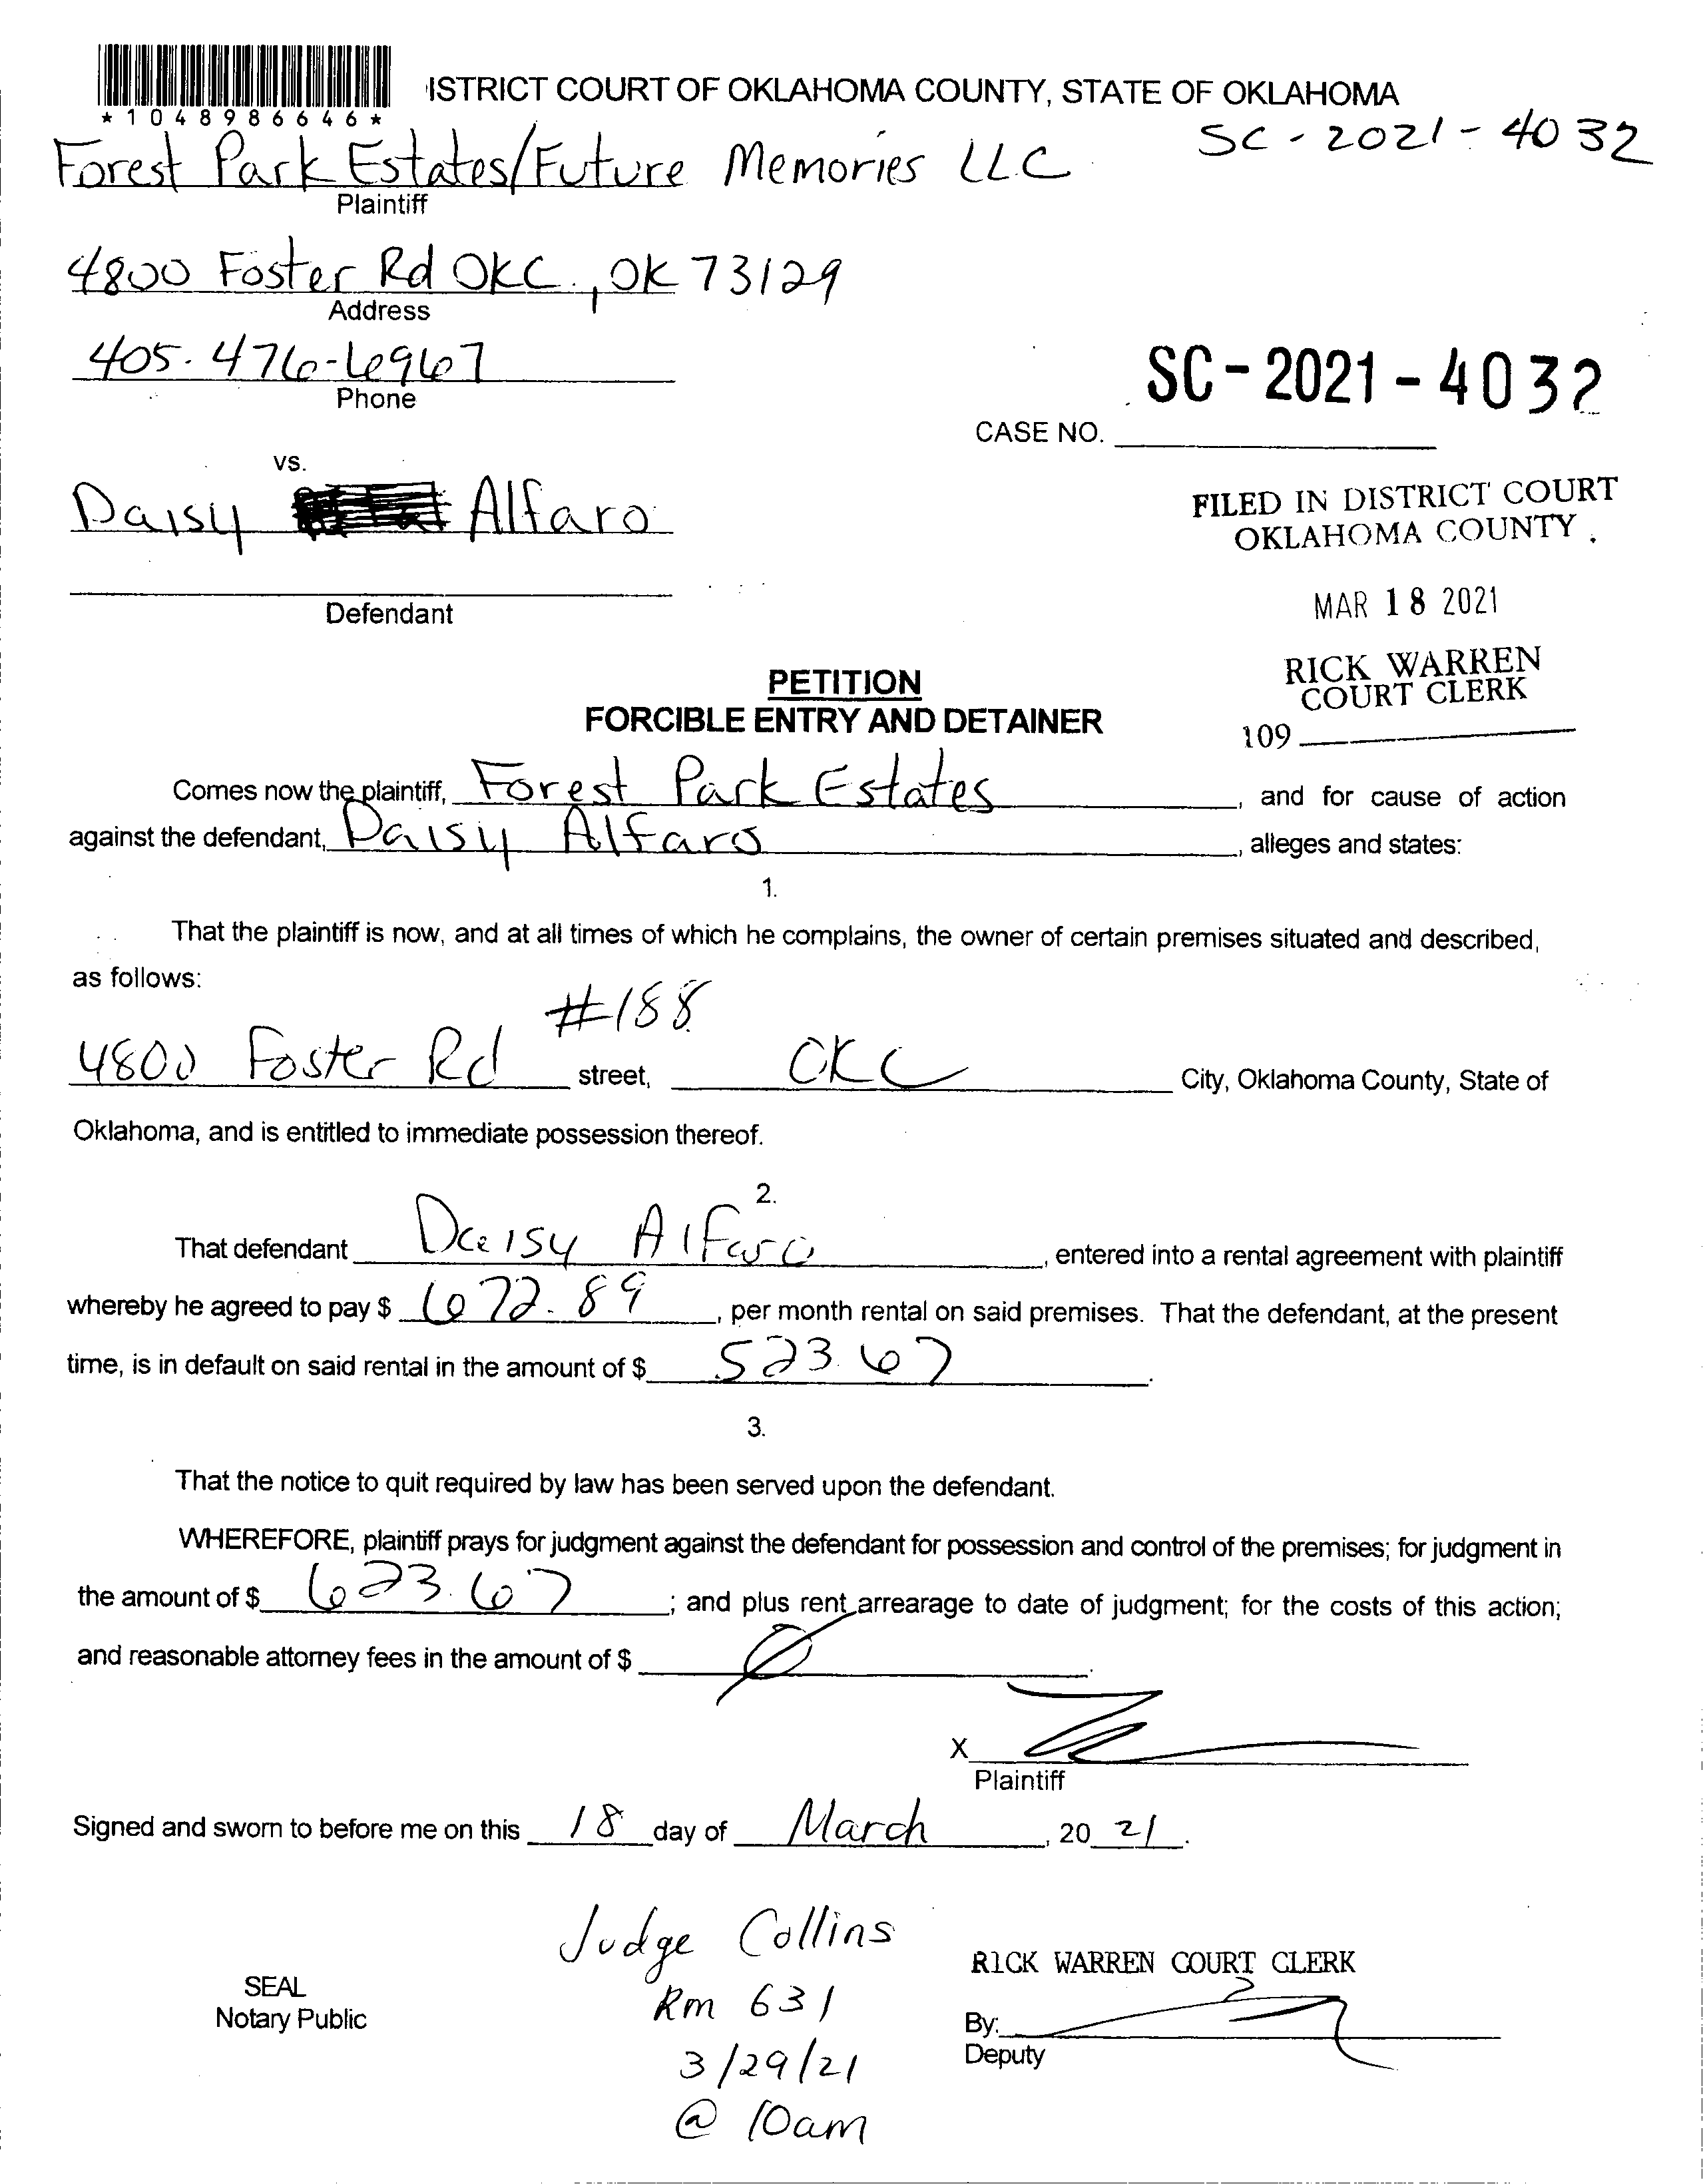 *1048986646*
ISTRICT COURT OF OKLAHOMA COUNTY, STATE OF OKLAHOMA
SC - 2021 - 4032
Forest Park Estates/Future Memories LLC
Plaintiff
4800 Foster Rd OKC, OK 73129
Address
405-476-6967
Phone
SC-2021-4032
CASE NO.
vs.
Daisy Alfaro
Defendant
FILED IN DISTRICT COURT
OKLAHOMA COUNTY
MAR 18 2021
RICK WARREN
COURT CLERK
109
PETITION
FORCIBLE ENTRY AND DETAINER
Comes now the plaintiff, Forest Park Estates, and for cause of action
against the defendant, Daisy Alfaro, alleges and states:
1.
That the plaintiff is now, and at all times of which he complains, the owner of certain premises situated and described,
as follows:
#188
4800 Foster Rd street, OKC City, Oklahoma County, State of
Oklahoma, and is entitled to immediate possession thereof.
2.
That defendant Daisy Alfaro, entered into a rental agreement with plaintiff
whereby he agreed to pay $ 672.89, per month rental on said premises. That the defendant, at the present
time, is in default on said rental in the amount of $ 523.67.
3.
That the notice to quit required by law has been served upon the defendant.
WHEREFORE, plaintiff prays for judgment against the defendant for possession and control of the premises; for judgment in
the amount of $ 623.67; and plus rent arrearage to date of judgment; for the costs of this action;
and reasonable attorney fees in the amount of $ Ø.
X
Plaintiff
Signed and sworn to before me on this 18 day of March, 20 21.
Judge Collins
Rm 631
3/29/21
@ 10am
SEAL
Notary Public
RICK WARREN COURT CLERK
By:
Deputy